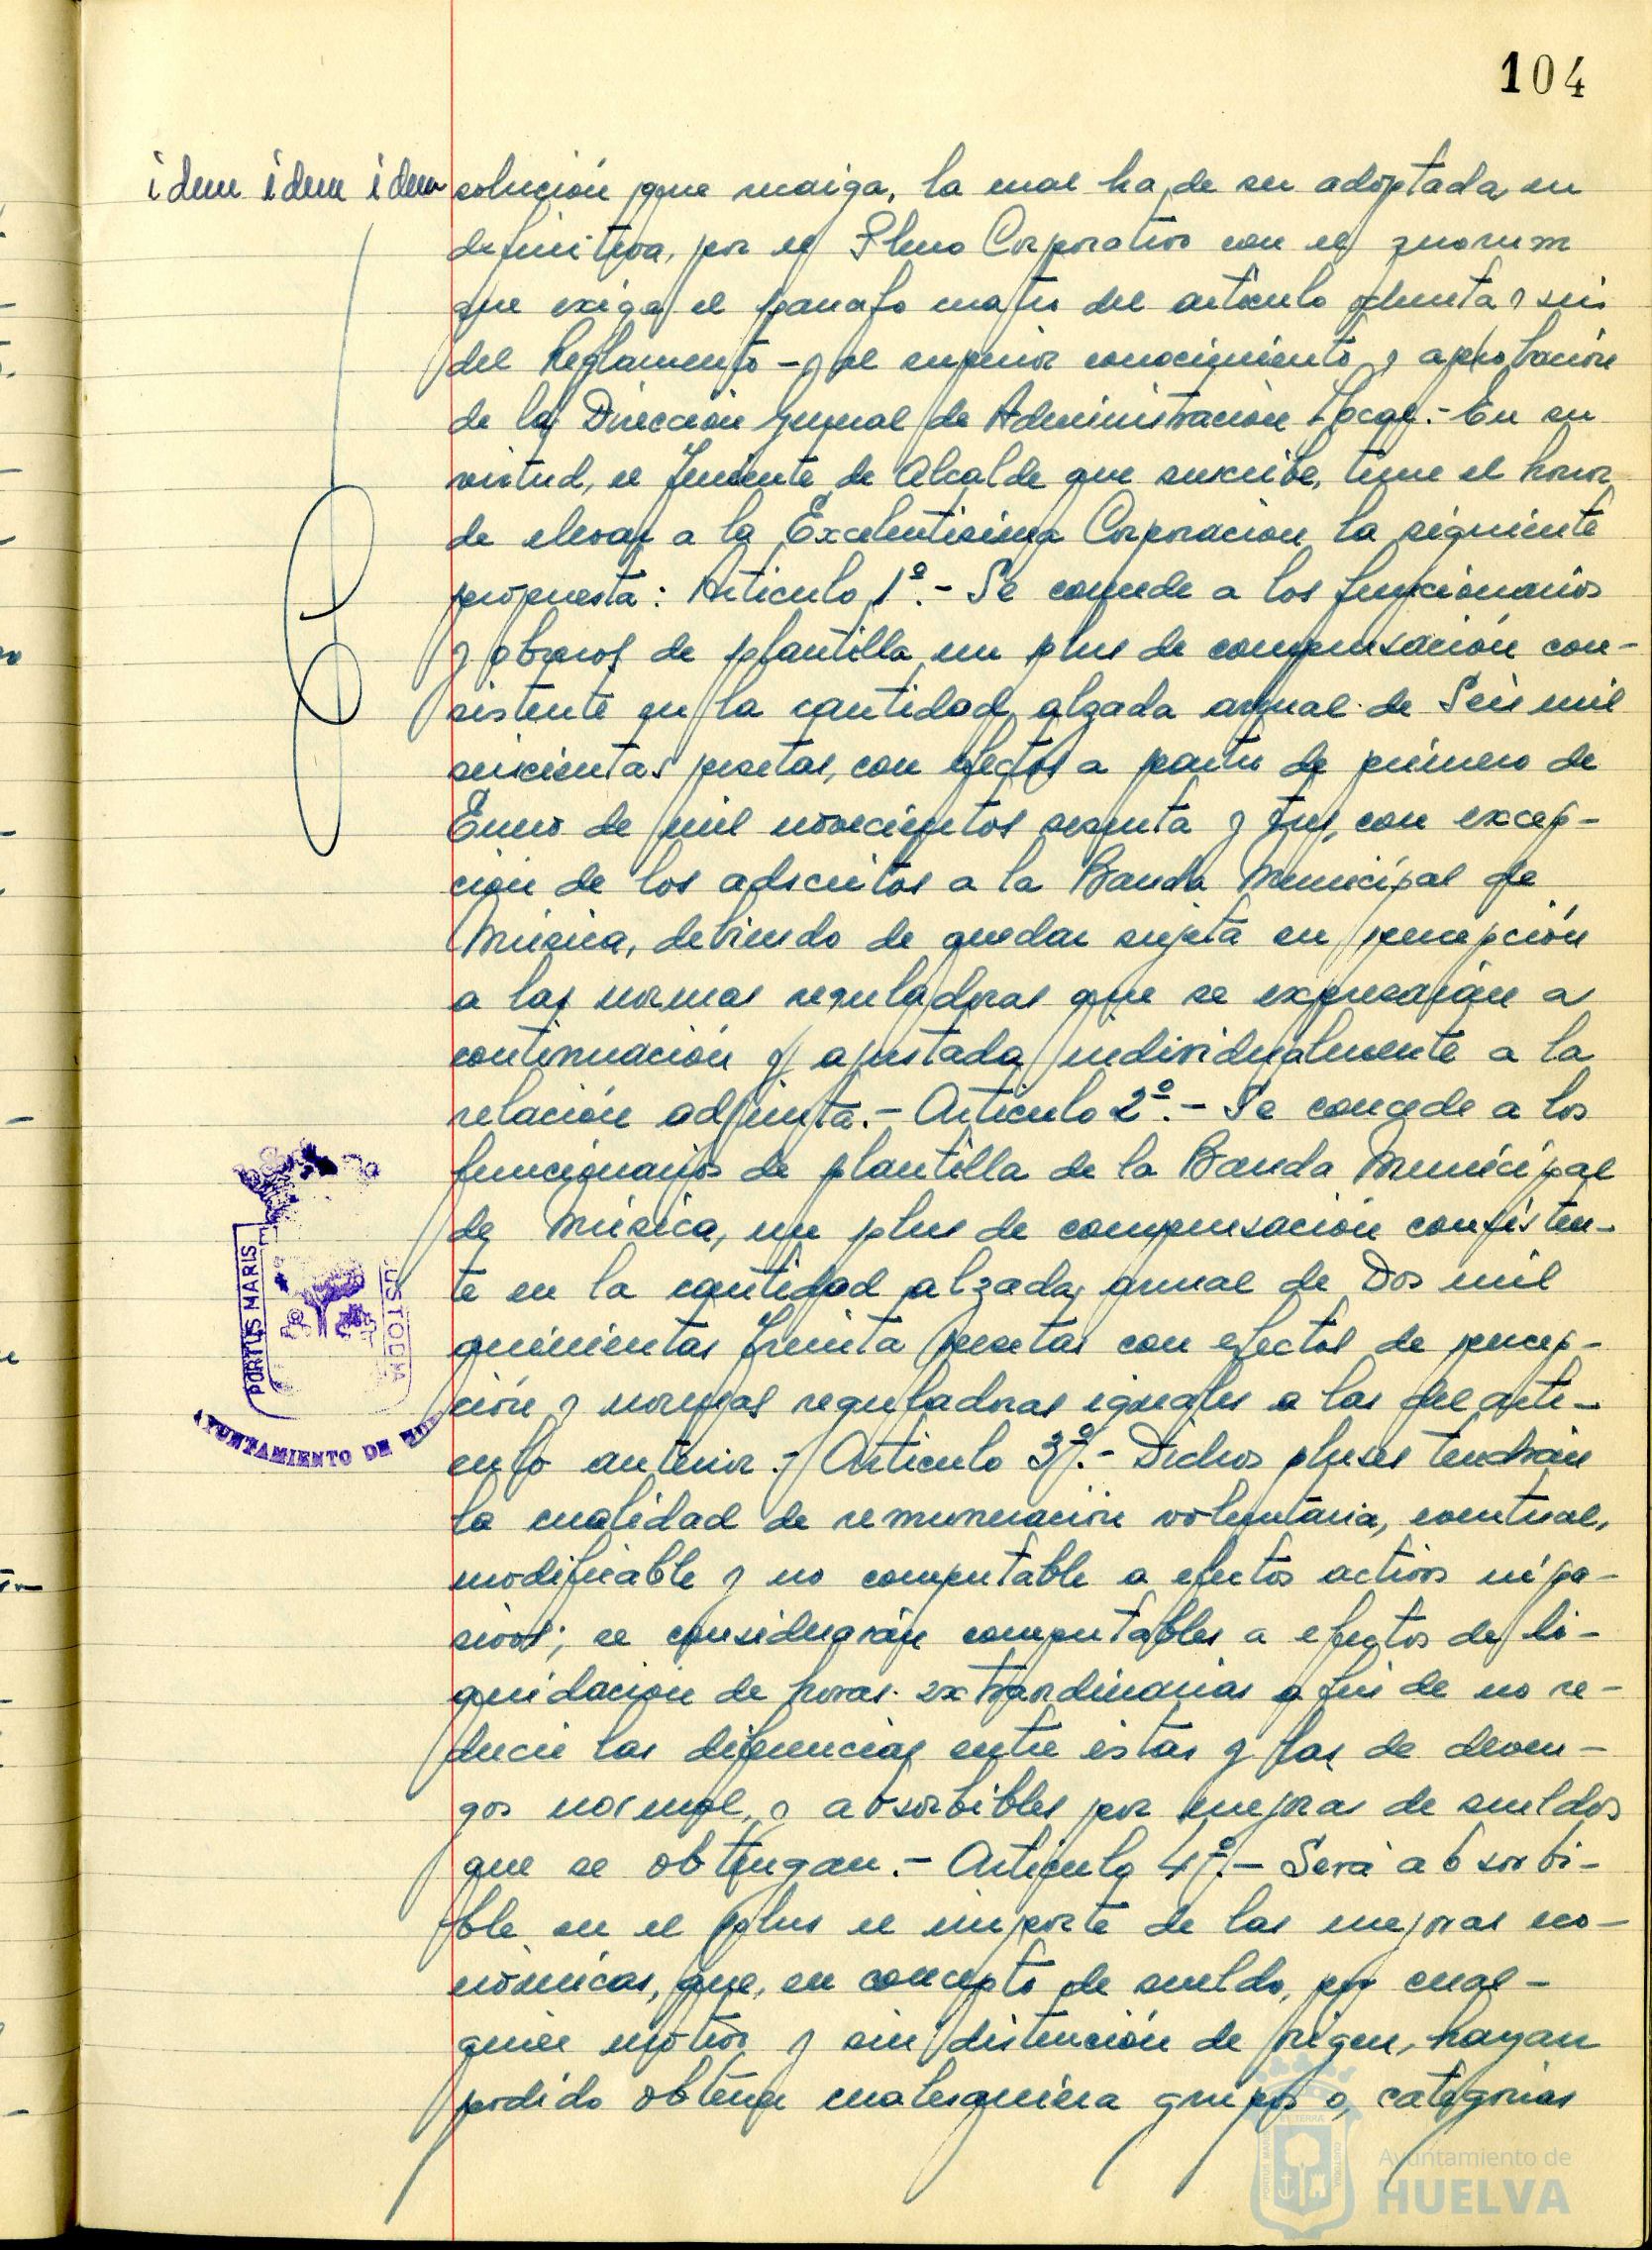 104
idem idem idem
solución que recaiga, la cual ha de ser adoptada en
definitiva, por el Pleno Corporativo con el quorum
que exige el parrafo cuatro del articulo ochenta y seis
del Reglamento - y al superior conocimiento y aprobación
de la Dirección general de Administración Local.- En su
virtud, el Teniente de Alcalde que suscribe, tiene el honor
de elevar a la Excelentisima Corporación la siguiente
propuesta: Articulo 1º.- Se concede a los funcionarios
y obreros de plantilla un plus de compensación con-
sistente en la cantidad alzada anual de Seis mil
seiscientas pesetas, con efectos a partir de primero de
Enero de mil novecientos sesenta y tres, con excep-
ción de los adscritos a la Banda Municipal de
Música, debiendo de quedar sujeta su percepción
a las normas reguladoras que se expresarán a
continuación y ajustada individualmente a la
relación adjunta.- Articulo 2º.- Se concede a los
funcionarios de plantilla de la Banda Municipal
de Música, un plus de compensación consisten-
te en la cantidad alzada anual de Dos mil
quinientas treinta pesetas con efectos de percep-
ción y normas reguladoras iguales a las del arti-
culo anterior.- Articulo 3º.- Dichos pluses tendrán
la cualidad de remuneración voluntaria, eventual,
modificable y no computable a efectos activos ni pa-
sivos; se considerarán computables a efectos de li-
quidación de horas extraordinarias a fin de no re-
ducir las diferencias entre éstas y las de deven-
gos normal, y absorbibles por mejoras de sueldos
que se obtengan.- Articulo 4º.- Será absorbi-
ble en el plus el importe de las mejoras eco-
nómicas, que, en concepto de sueldo, por cual-
quier motivo y sin distención de origen, hayan
podido obtener cualesquiera grupos o, categorias
PORTUS MARIS
CUSTODIA
AYUNTAMIENTO DE HUE
Ayuntamiento de
HUELVA